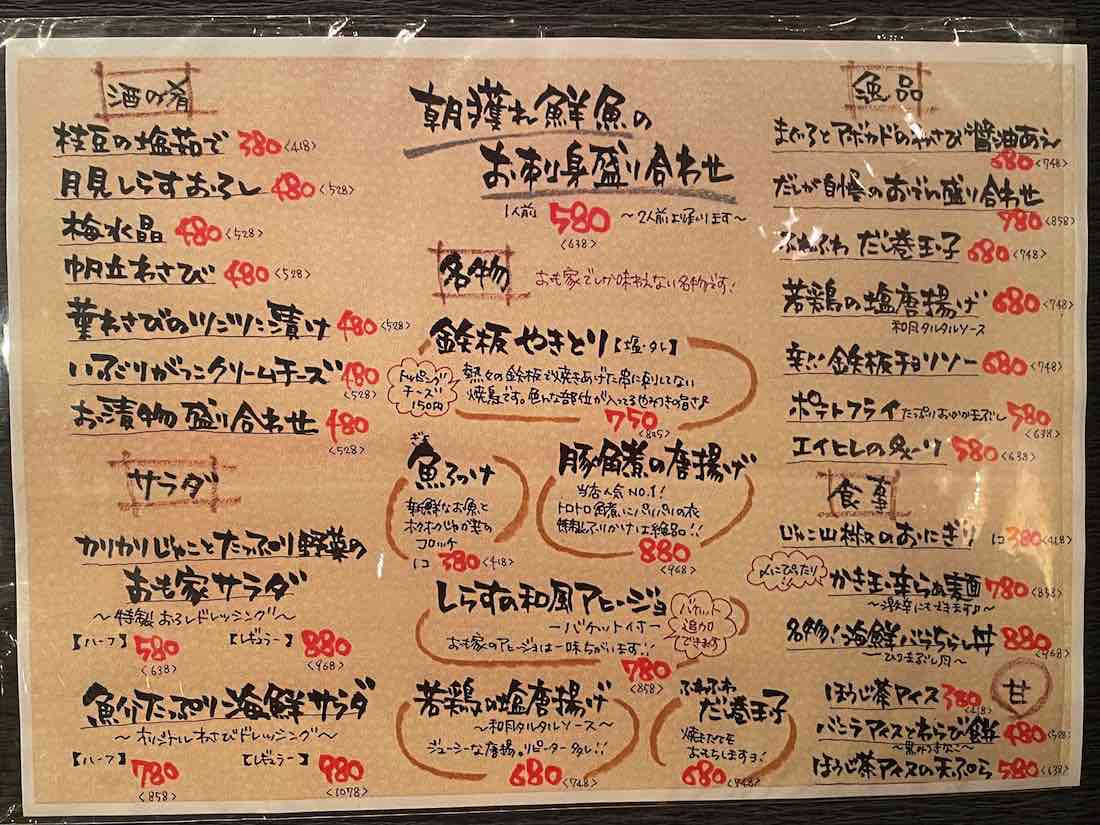 酒の肴
枝豆の塩茹で 380 <418>
月見しらすおろし 480 <528>
梅水晶 480 <528>
帆立わさび 480 <528>
葉わさびのツンツン漬け 480 <528>
いぶりがっこクリームチーズ 480
<528>
お漬物盛り合わせ 480
<528>
サラダ
カリカリじゃことたっぷり野菜の
おも家サラダ
〜特製おろしドレッシング〜
【ハーフ】 580 【レギュラー】 880
<638> <968>
魚介たっぷり海鮮サラダ
〜オリジナルわさびドレッシング〜
【ハーフ】 780 【レギュラー】 980
<858> <1078>
朝獲れ鮮魚の
お刺身盛り合わせ
1人前 580 〜2人前より承ります〜
<638>
名物 おも家でしか味わえない名物です!
鉄板やきとり【塩・タレ】
トッピング
チーズ
150円
熱々の鉄板で焼きあげた串に刺してない
焼鳥です。色んな部位が入ってるやみつきの旨さ♪
750
<825>
ぎょ
魚ろっけ
新鮮なお魚と
ホクホクじゃが芋の
コロッケ
1コ 380 <418>
豚角煮の唐揚げ
当店人気NO.1!
トロトロ角煮にパリパリの衣
特製ふりかけは絶品!!
880
<968>
しらすの和風アヒージョ
ーバケット付ー
おも家のアヒージョは一味ちがいます!!
バケット
追加
できます
780
<858>
若鶏の塩唐揚げ
〜和風タルタルソース〜
ジューシーな唐揚。リピーター多し!!
680 <748>
ふわふわ
だし巻玉子
焼きたてを
おもちしますヨ!
680 <748>
逸品
まぐろとアボカドのわさび醤油あえ
680 <748>
だしが自慢のおでん盛り合わせ
780 <858>
ふわふわだし巻玉子 680 <748>
若鶏の塩唐揚げ 680 <748>
和風タルタルソース
辛い鉄板チョリソー 680 <748>
ポテトフライ たっぷりおかかまぶし 580
<638>
エイヒレの炙り 580 <638>
食事
じゃこ山椒のおにぎり 1コ 380 <418>
〆にぴったり
かき玉辛らぁ麺 780 <858>
〜激辛にもできます♪〜
名物!海鮮バラちらし丼 880
<968>
甘
ほうじ茶アイス 380 <418>
バニラアイスとわらび餅 480 <528>
〜黒みつきなこ〜
ほうじ茶アイスの天ぷら 580 <638>